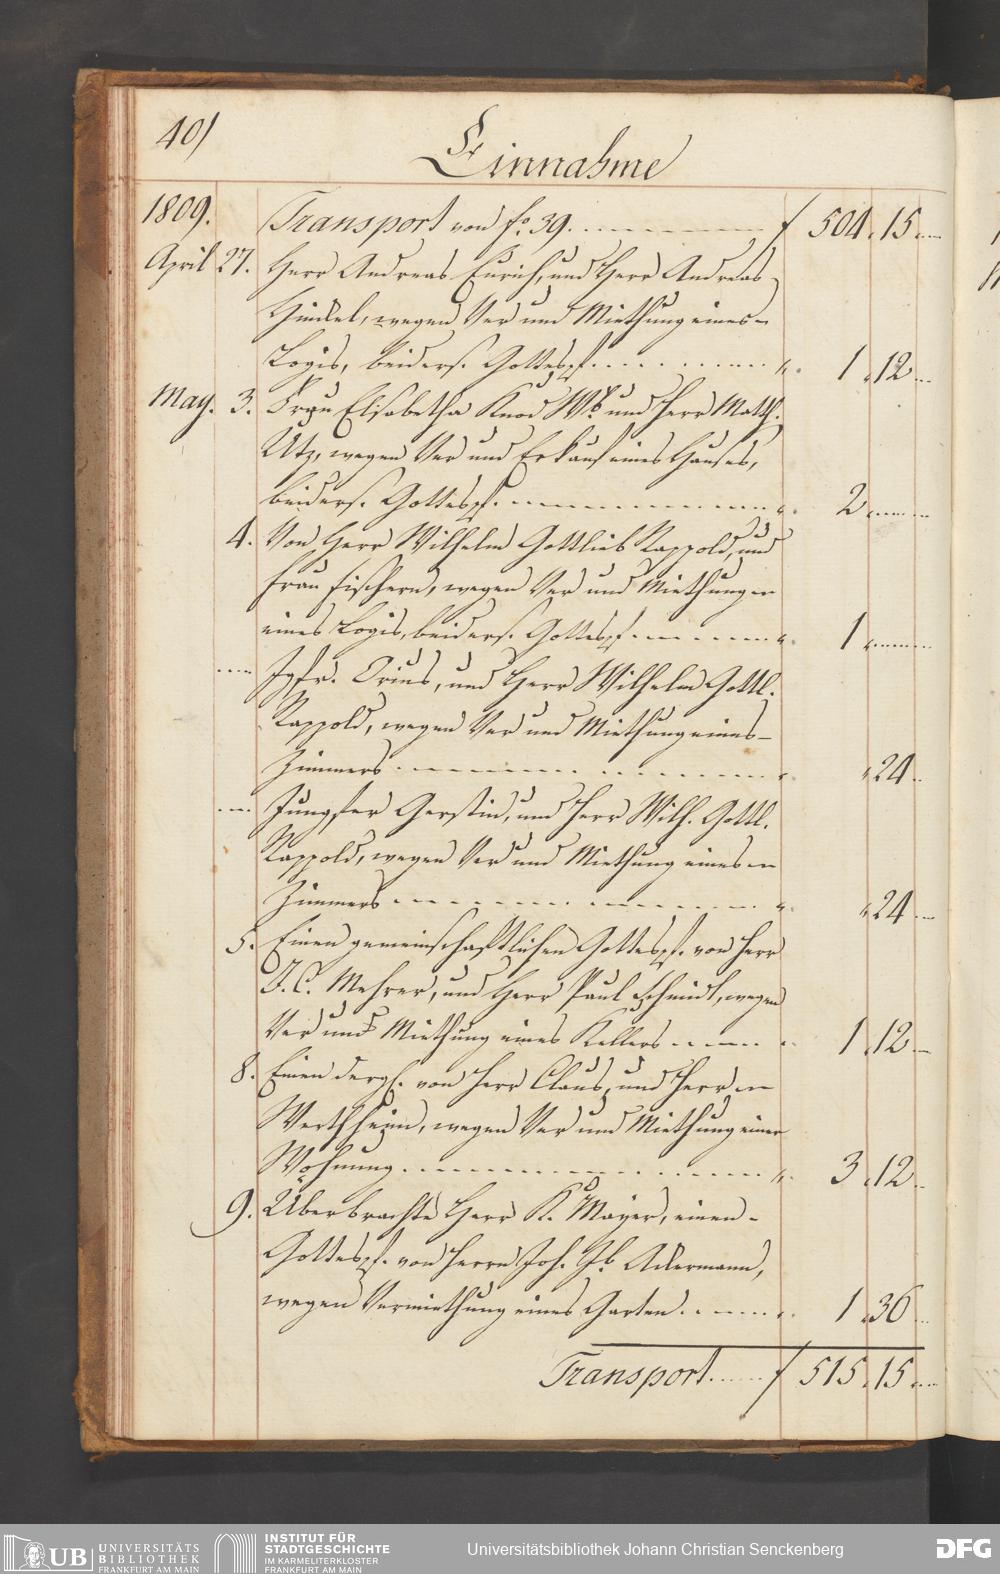 40)
Einnahme
1809. Transport von fo. 39. f 504. 15.
April 27. Herr Andreas Eurich, und Herr Andreas
Hinkel, wegen Ver und Miethung eines
Logis, beiders. Gottespf. " 1. 12
May. 3. Frau Elisabetha Knod Wb. und Herr Matth.
Utz, wegen Ver und Erkauf eines Hauses,
beiders. Gottespf. " 2
4. Von Herr Wilhelm Gottlieb Rappold, und
Frau Fischern, wegen Ver und Miethung
eines Logis, beiders. Gottespf. " 1
Jgfr. Orius, und Herr Wilhelm Gottl.
Rappold, wegen Ver und Miethung eines
Zimmers " " 24
Jungfer Gerstin, und Herr Wilh. Gottl.
Rappold, wegen Ver und Miethung eines
Zimmers " " 24
5. Einen gemeinschaftlichen Gottespf. von Herr
J. C. Mehrer, und Herr Paul Schmidt, wegen
Ver und Miethung eines Kellers " 1. 12
8. Einen dergl. von Herr Claus, und Herr
Werthheim, wegen Ver und Miethung einer
Wohnung " 3. 12
9. Überbrachte Herr K. Mayer, einen
Gottespf. von Herrn Joh. Gb. Ackermann,
wegen Vermiethung eines Garten " 1. 36
Transport f 515. 15
UB UNIVERSITÄTS
BIBLIOTHEK
FRANKFURT AM MAIN
INSTITUT FÜR
STADTGESCHICHTE
IM KARMELITERKLOSTER
FRANKFURT AM MAIN
Universitätsbibliothek Johann Christian Senckenberg
DFG